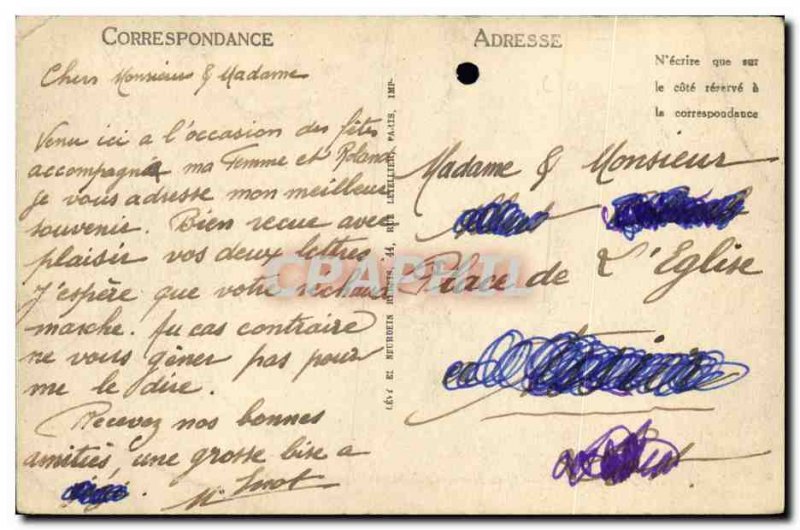 CORRESPONDANCE
Chers Monsieur & Madame
Venu ici a l'occasion des fêtes
accompagné ma femme et Roland
je vous adresse mon meilleur
souvenir. Bien recue avec
plaisir vos deux lettres
J'espère que votre réchaud
marche. Au cas contraire
ne vous gêner pas pour
me le dire.
Recevez nos bonnes
amitiés, une grosse bise a
LÉVY ET NEURDEIN RÉUNIS, 44, RUE LETELLIER, PARIS, IMP.
ADRESSE
N'écrire que sur
le côté réservé à
la correspondance
Madame & Monsieur
Place de L'Eglise
CPAPHIL